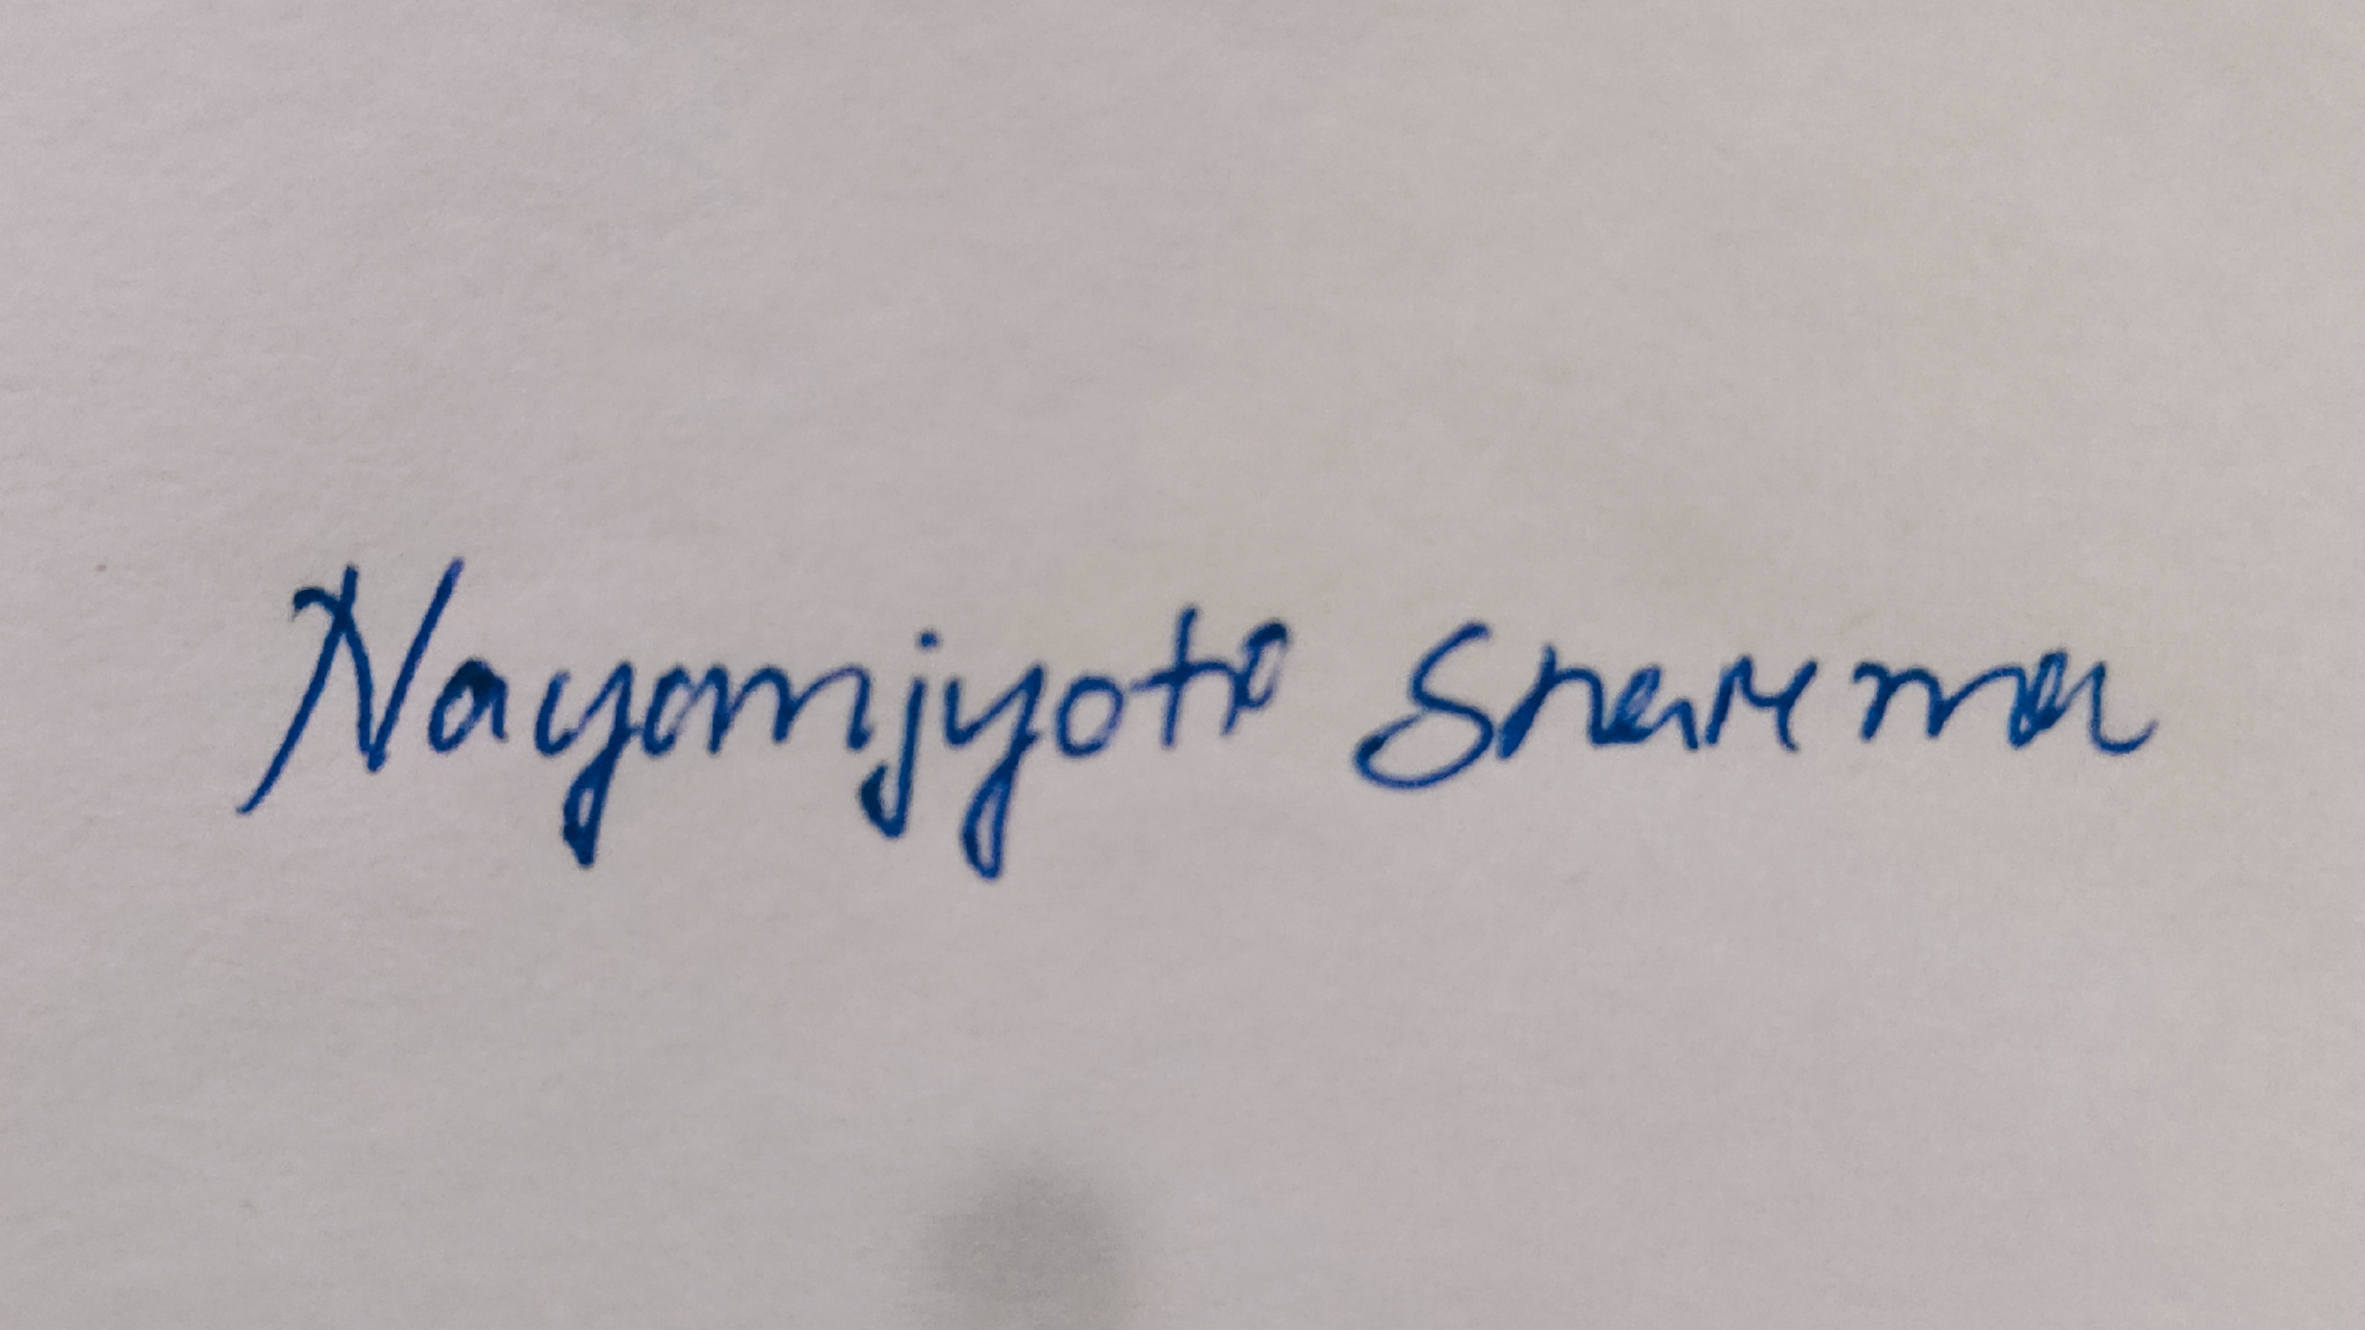 Nayanjyoti Sharma